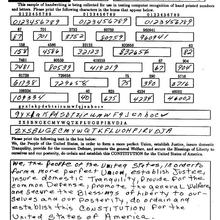 This sample of handwriting is being collected for use in testing computer recognition of hand printed numbers
and letters. Please print the following characters in the boxes that appear below.
0123456789 0123456789 0123456789
0123456789 0123456789 0123456789
87 701 3752 80759 960941
87 701 3752 80759 960941
158 4586 32123 832656 82
158 4586 32123 832656 82
7481 80539 419219 67 904
7481 80539 419219 67 904
61738 729658 75 390 5716
109334 40 625 4234 46002
109334 40 625 4234 46002
ZXSBNGECMYWQTKFLUOHPIRVDJA
We, the People of the United States, in order to form a more perfect Union, establish Justice, insure domestic
Tranquility, provide for the common Defense, promote the general Welfare, and secure the Blessings of Liberty to
ourselves and our posterity, do ordain and establish this CONSTITUTION for the United States of America.
We, the People of the United States, in order to
form a more perfect Union, establish Justice,
insure domestic Tranquility, provide for the
common Defense, promote the general Welfare,
and secure the Blessings of Liberty to our-
selves and our posterity, do ordain and
establish this CONSTITUTION for the
United States of America.